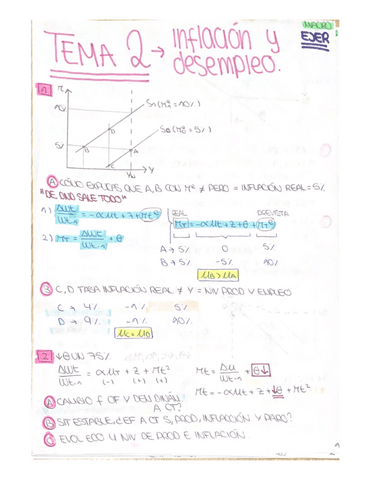 MACRO
EJER
TEMA 2 → inflación y
desempleo.
1
10%
S1 (πte = 10%)
5%
S0 (πte = 5%)
D
B
A
Y
YN
A CÓMO EXPLICAS QUE A, B CON πe ≠ PERO = INFLACIÓN REAL = 5%
"DE DND SALE TODO"
REAL PREVISTA
1) = -αUt + z + πte
πt = -αUt + z + θ + πte
2) πt = + θ
A → 5% 0 5%
B → 5% -5% 10%
UB > UA
B C, D TASA INFLACIÓN REAL ≠ Y = NIV PROD Y EMPLEO
C → 4% -1% 5%
D → 9% -1% 10%
UC = UD
2 ↓ θ UN 75%
= αUt + z + πte
(-) (+) (+)
πt = + θ↓
πt = -αUt + z + ↓θ + πte
A CAMBIO f OF Y DEN DINÁM
A CT?
B SIT ESTABLE, ¿EF A CT S, PROD, INFLACIÓN Y PARO?
C EVOL ECO U NIV DE PROD E INFLACIÓN.